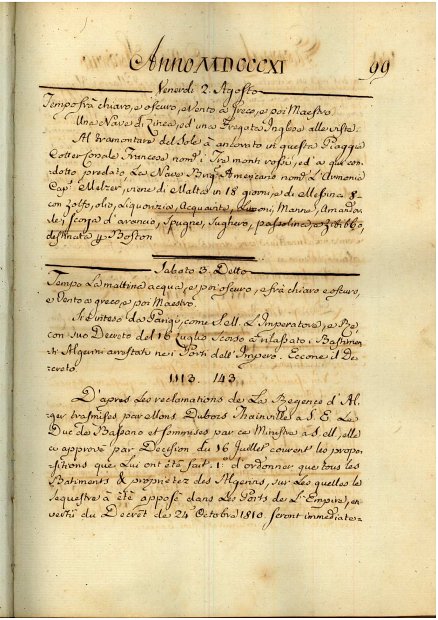 Anno MDCCCXI
99
Venerdi 2. Agosto
Tempo frà chiaro, e oscuro, e vento à Greco, e poi Maestro.
Una Nave di Linea, ed una Fregata Inglese alle viste.
Al tramontare del Sole à ancorato in questa Piaggia
Cotter Corsale Francese nom.º i Tre monti rossi, ed à qui con-
dotto predato La Nave Brig. Americano nom.º L'Armonia
Cap.º Melzer, viene di Malta in 18 giorni, e di Messina 8
con Zolfo, olio, Liquorizia, Acquavite, Limoni, Manna, Amandor-
le, Scorza d'arancio, Spugne, Sughero, passolina, e zibibbo,
destinata p Boston
Sabato 3. Detto
Tempo La mattina acqua, e poi oscuro, e frà chiaro e oscuro,
e vento à greco, e poi Maestro.
Si è inteso da Parigi, come S.M. L'Imperatore, e Re,
con suo Decreto del 16 Luglio Scorso à rilassato i Bastimen-
ti Algerini arrestati nei Porti dell'Impero. Eccone il De-
creto
1113. 143.
D'après Les reclamations de La Regence d'Al-
ger trasmises par Mons Dubois Thainville à S.E. Le
Duc de Bassano et soumises par ce Ministre à S.M., elle
a approuvé par Decision du 16 Juillet courent les propo-
sitions que Lui ont été fait. 1.º d'ordonner que tous les
Batiments & proprietez des Algerins, sur Les quelles le
sequestre à été apposé dans Les Ports de L'Empire, en
vertù du Decret de 24 Octobre 1810. seront immediate=